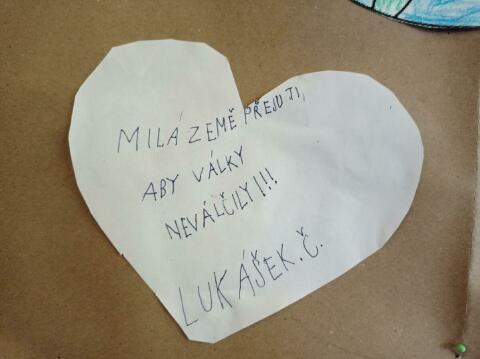 MILÁ ZEMĚ PŘEJU TI,
ABY VÁLKY
NEVÁLČILY!!!
LUKÁŠEK.Č.